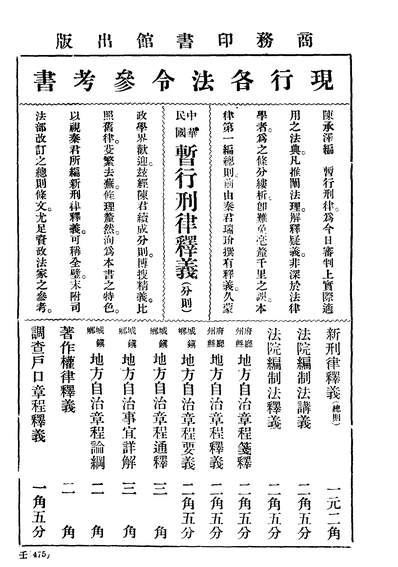 商務印書館出版
現行各法令參考書
陳承澤編 暫行刑律。爲今日審判上實際適
用之法典。凡推闡法理。解釋疑義。非深於法律
學者。爲之條分縷析。卽難免毫釐千里之誤。本
律第一編總則。前由秦君瑞玠撰有釋義。久蒙
中華民國 暫行刑律釋義 (分則)
政學界歡迎。茲經陳君續成分則。博搜精義。比
照舊律。芟繁去蕪。條理釐然。洵爲本書之特色。
以視秦君所編新刑律釋義。可稱全璧。末附司
法部改訂之總則條文。尤足資政法家之參考。
新刑律釋義(總則) 一元二角
法院編制法講義 二角五分
法院編制法釋義 二角五分
府廳州縣地方自治章程箋釋 二角五分
府廳州縣地方自治章程釋義 二角五分
城鎭鄉地方自治章程要義 二角五分
城鎭鄉地方自治章程通釋 三角
城鎭鄉地方自治事宜詳解 三角
城鎭鄉地方自治章程論綱 二角
著作權律釋義 二角
調查戶口章程釋義 一角五分
壬(475)